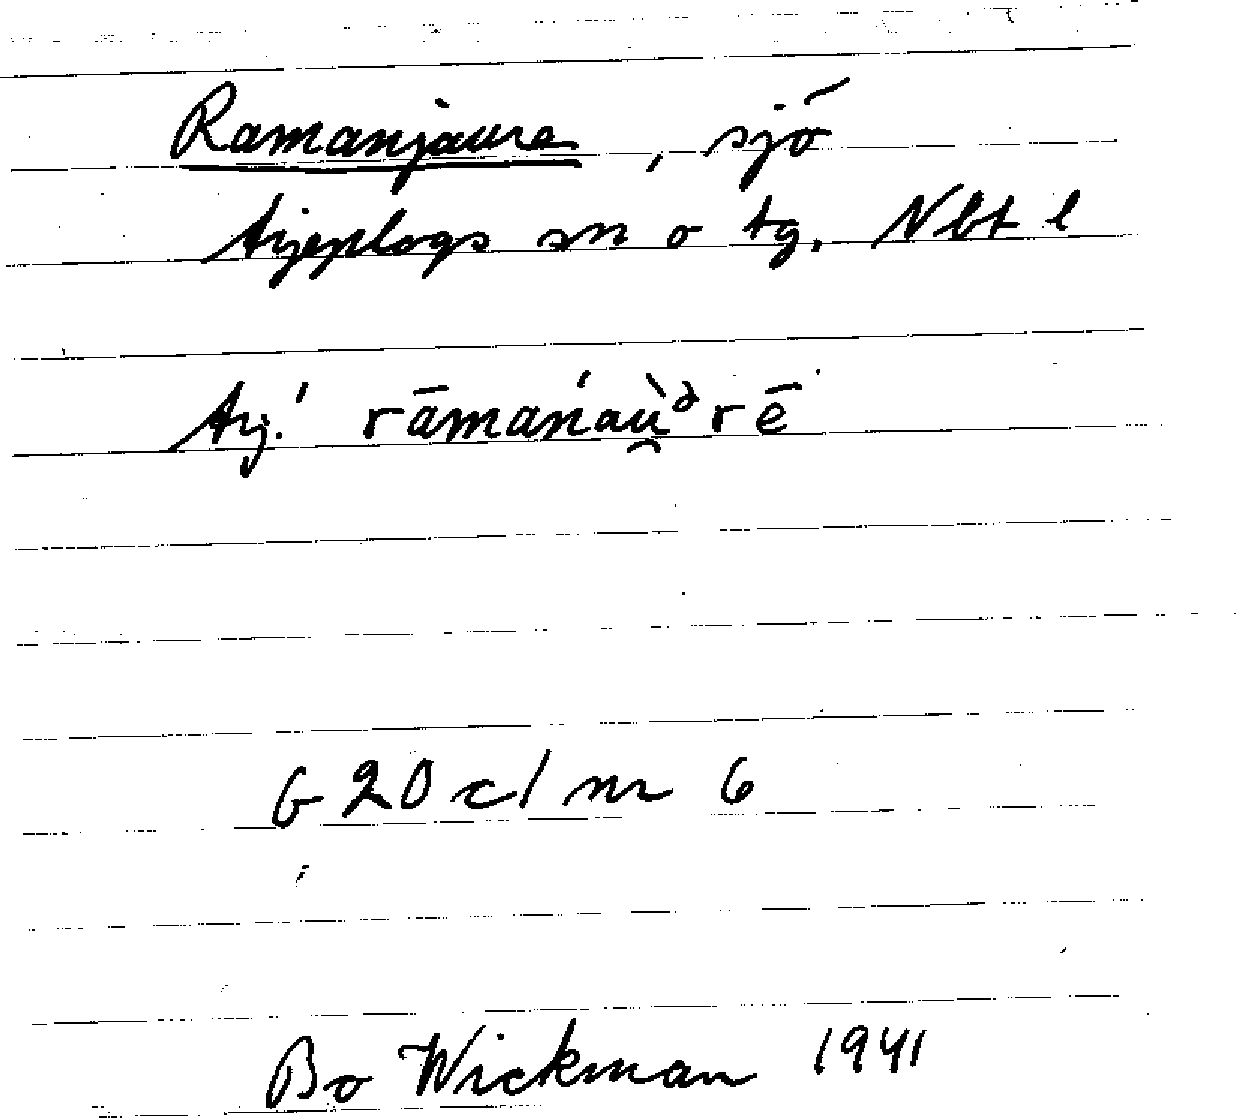 Ramanjaure, sjö
Arjeplogs sn o tg. Nbt l
Arj.! rāmań́aù̯ᵊrē
G 20 c/ nr 6
Bo Wickman 1941